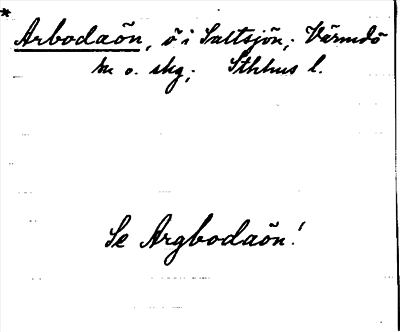 *
Arbodaön, ö i Saltsjön; Värmdö
sn o. skg; Sthlms l.
Se Argbodaön!